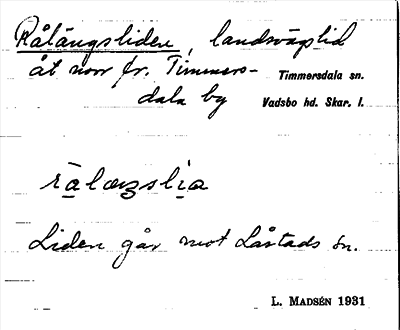 Rålängsliden, landsvägslid
åt norr fr. Timmers-
dala by
Timmersdala sn.
Vadsbo hd. Skar. l.
rålæŋslia
Liden går mot Låstads sn.
L. MADSÉN 1931